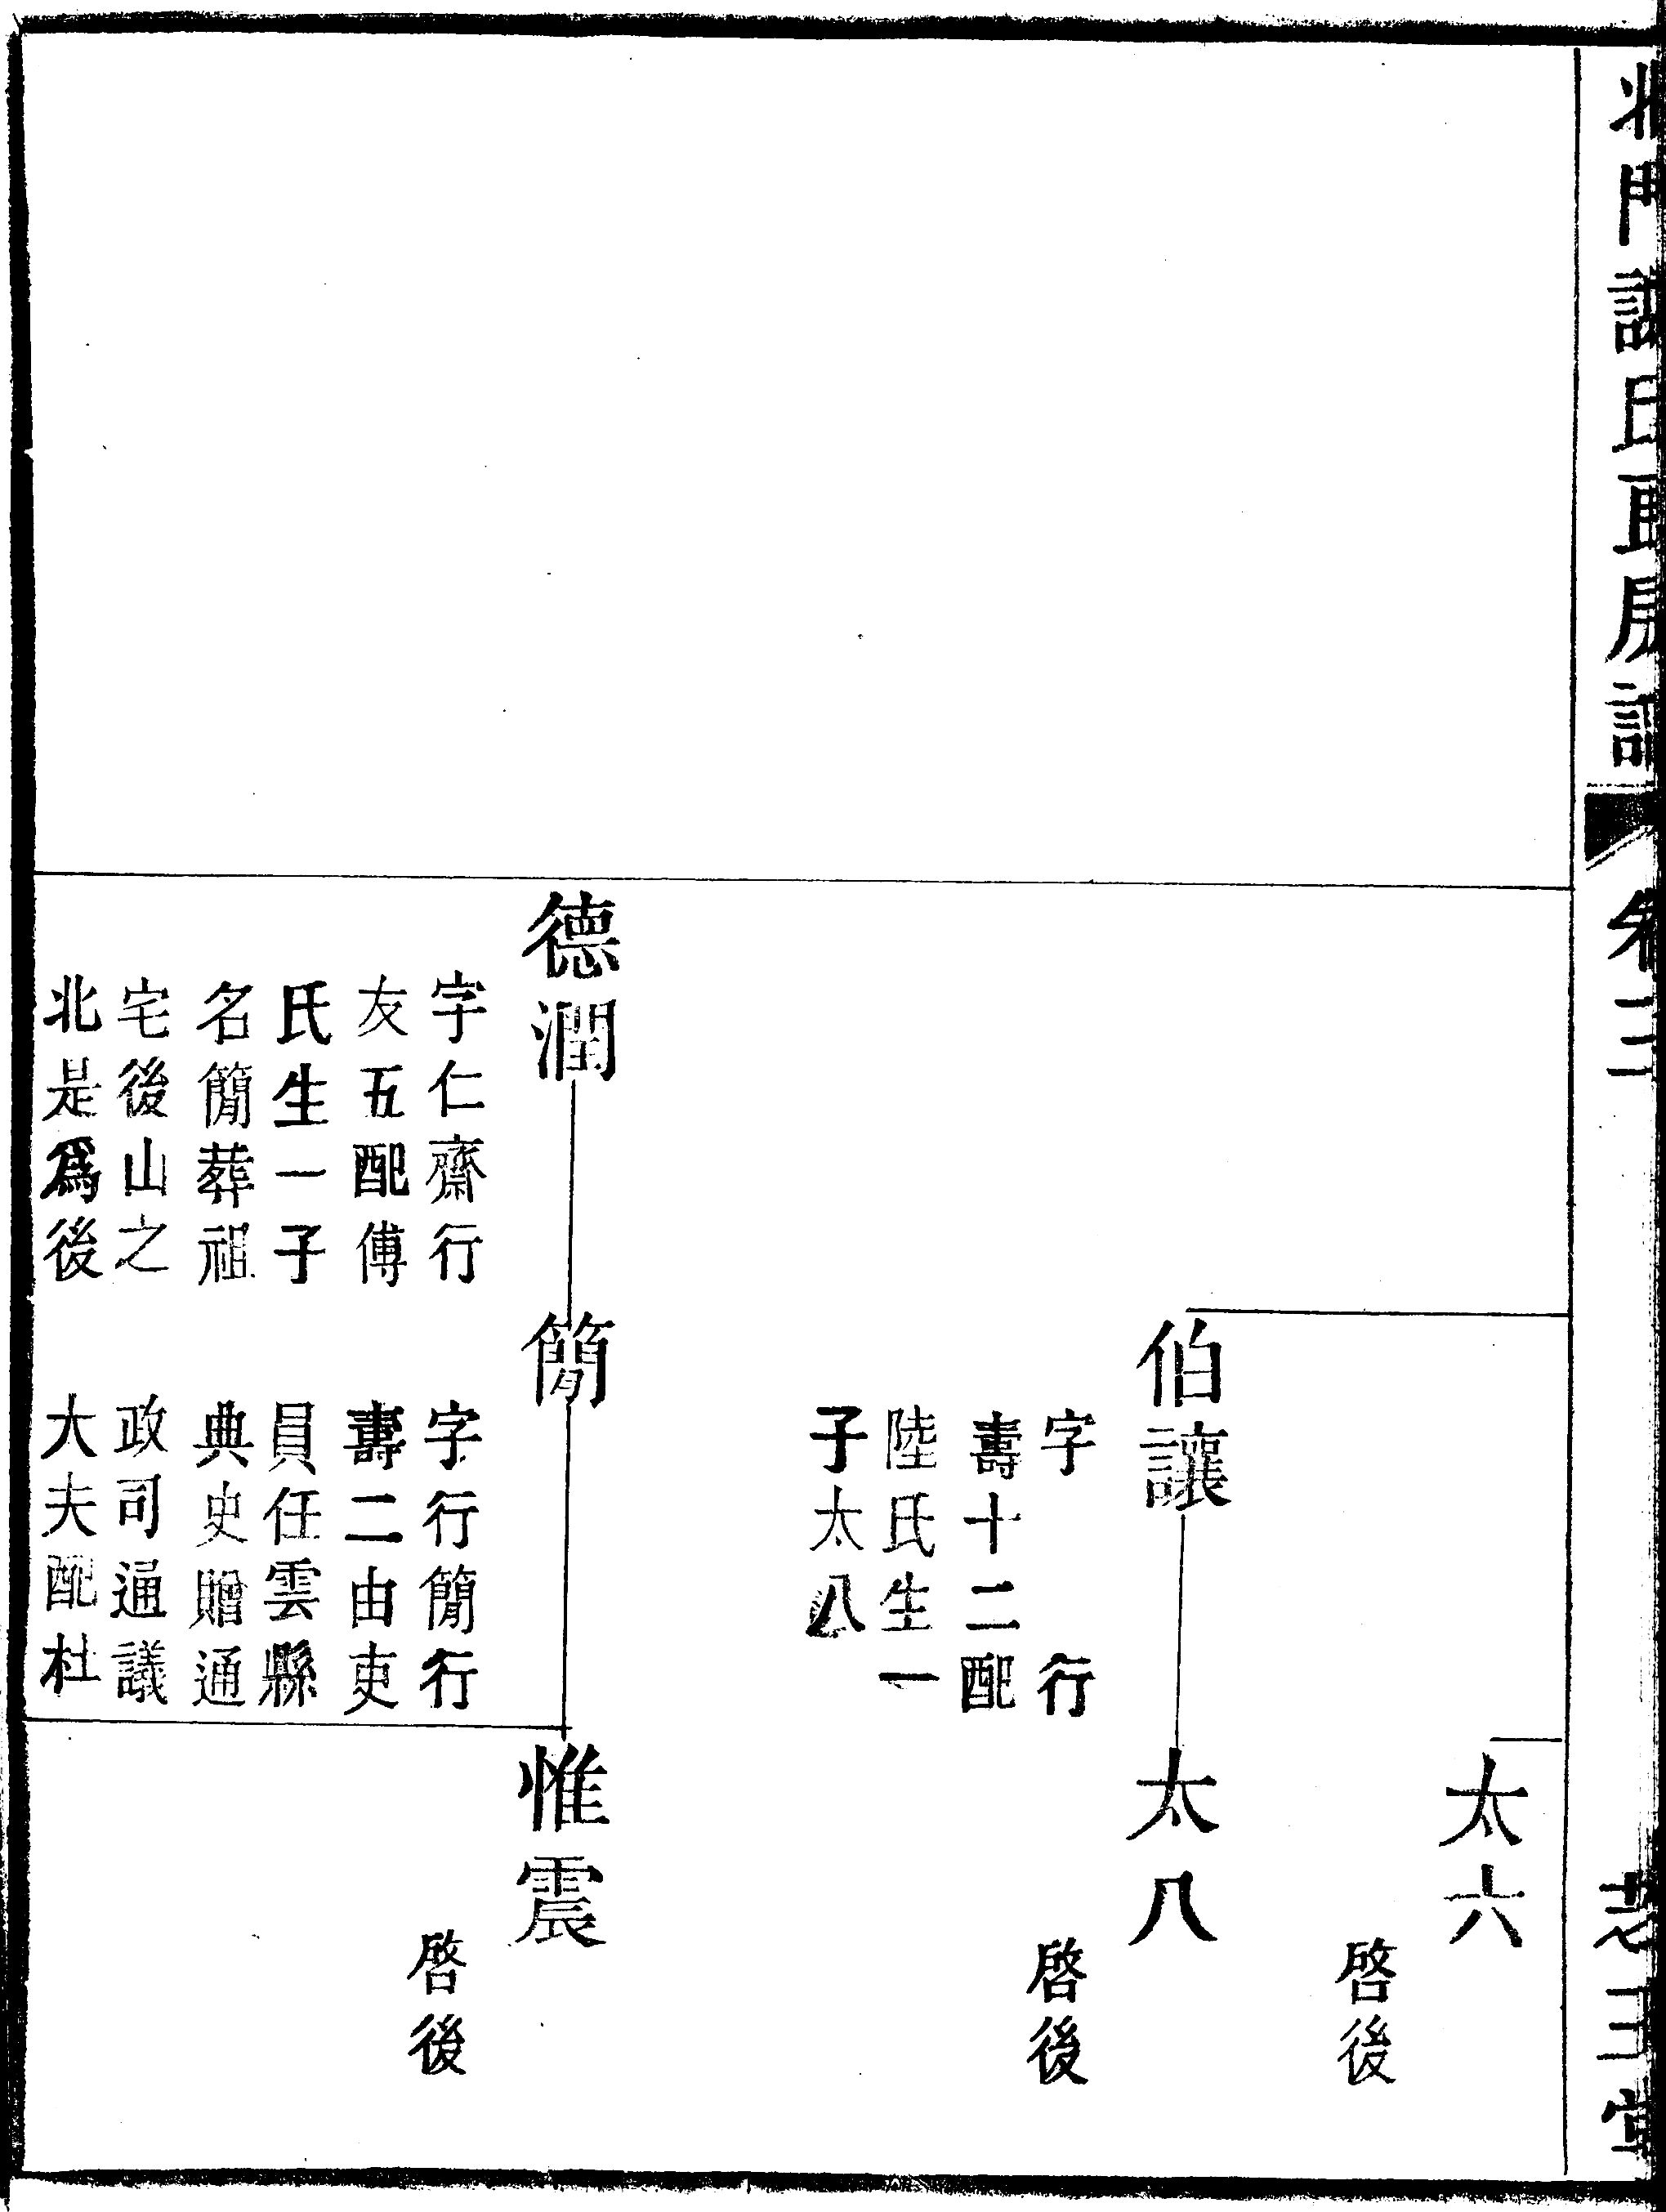 北門
氏
房譜
卷三
堂
太六
啓後
伯讓
字 行
壽十二配
陸氏生一
子太八
太八
啓後
德潤
字仁齋行
友五配傅
氏生一子
名簡葬祖
宅後山之
北是爲後
簡
字行簡行
壽二由吏
員任雲縣
典史贈通
政司通議
大夫配杜
惟震
啓後